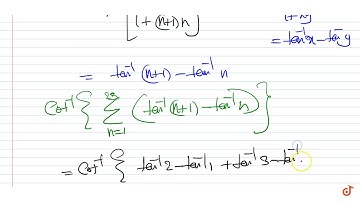 [1+(n+1)n]
1+ny
= tan⁻¹x - tan⁻¹y
= tan⁻¹(n+1) - tan⁻¹n
Cot⁻¹{ ∑ n=1 (tan⁻¹(n+1) - tan⁻¹n) }
= Cot⁻¹{ tan⁻¹2 - tan⁻¹1 + tan⁻¹3 - tan⁻¹